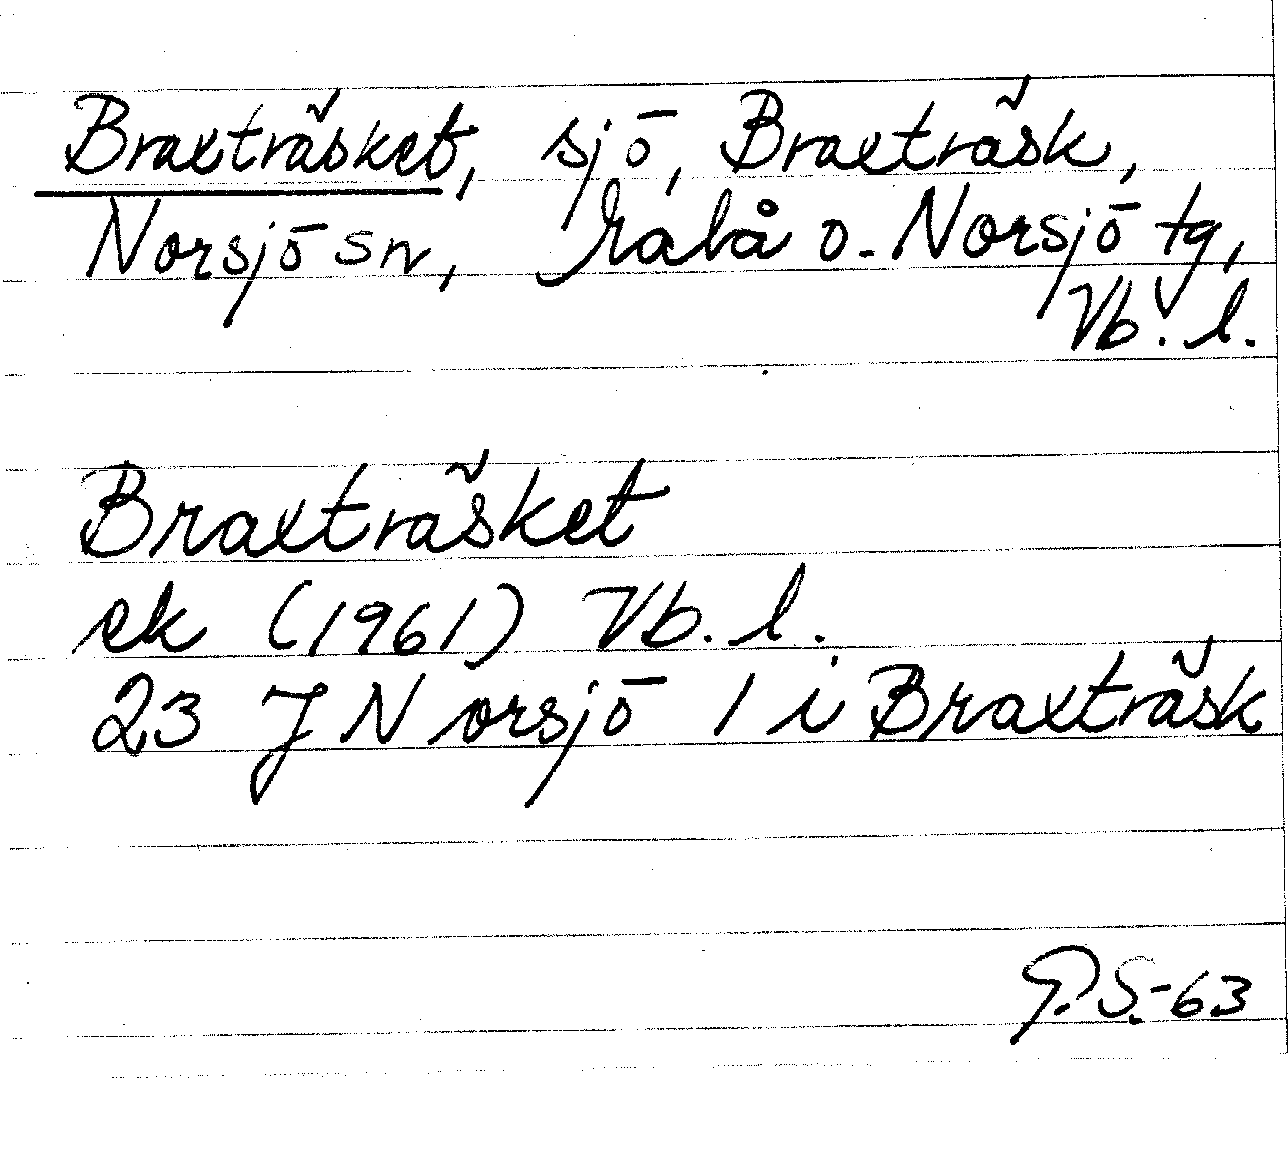 Braxträsket, sjö, Braxträsk,
Norsjö sn, Malå o. Norsjö tg,
Vb. l.
Braxträsket
ek (1961) Vb. l.
23 J Norsjö 1 i Braxträsk
P.S.-63